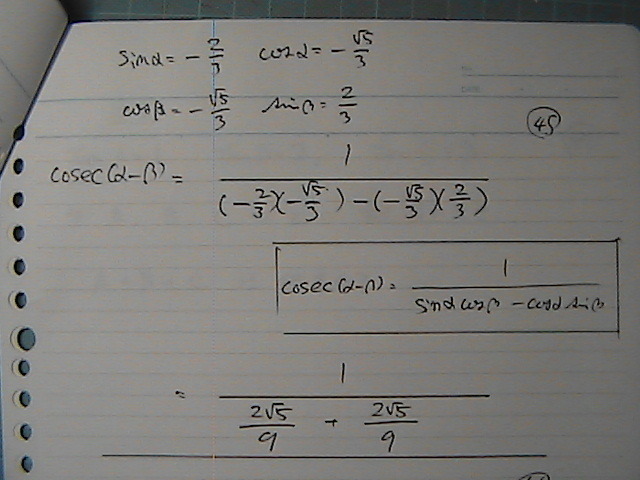 sinα = -2/3 cosα = -√5/3
cosβ = -√5/3 sinβ = 2/3
45
cosec(α-β) = 1/((-2/3)(-√5/3) - (-√5/3)(2/3))
cosec(α-β) = 1/(sinα cosβ - cosα sinβ)
= 1/(2√5/9 + 2√5/9)